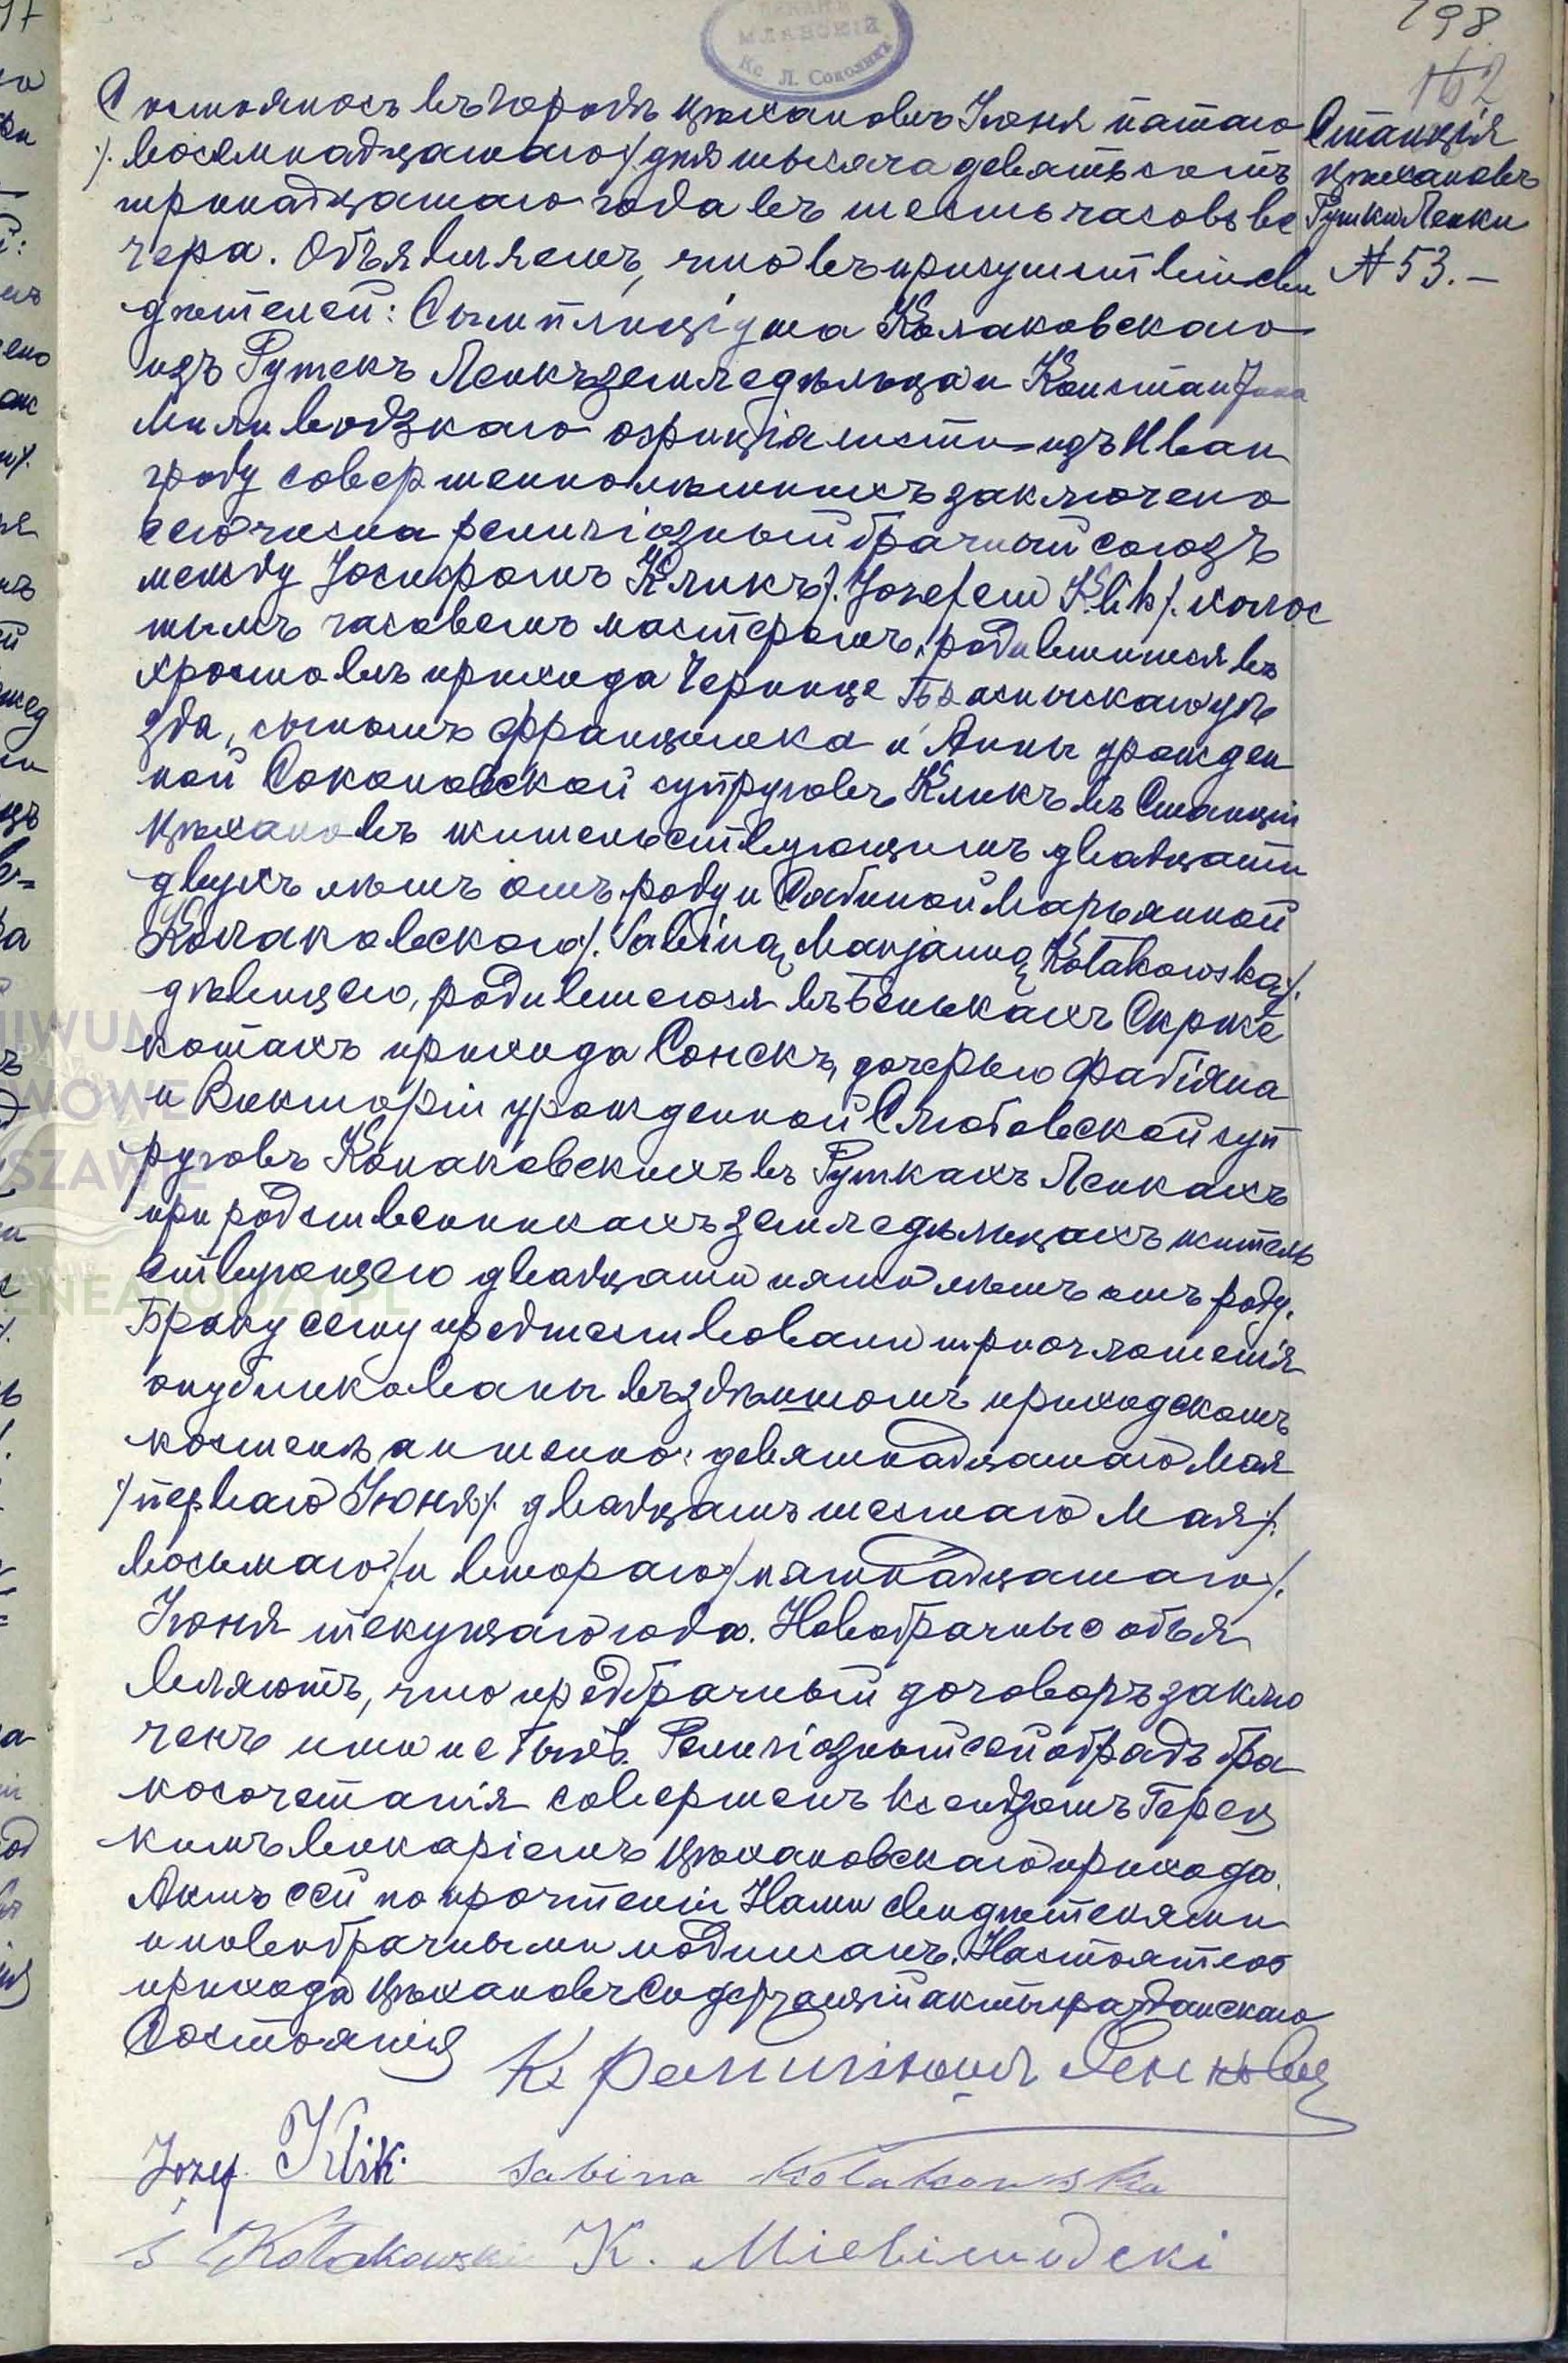 198
162
МЛАВСКІЙ
Кс Л. Соколикъ
Станція
Цѣхановъ
Рутки Ленки
№ 53.—
Состоялось въ городѣ Цѣхановѣ Іюня пятаго
/восемнадцатаго/ дня тысяча девятьсотъ
тринадцатаго года въ шесть часовъ ве
чера. Объявляемъ, что въ присутствіи сви
дѣтелей: Сымплиціуша Колаковскаго
изъ Рутекъ Ленкъ земледѣльца и Константина
официалиста изъ Иван
гроду совершеннолѣтнихъ заключено
сего числа религіозный брачный союзъ
между Іосифомъ Кликъ /Józefem Klik/ холос
тымъ часовемъ мастеромъ, родившимся въ
прихода Чернице Праснышскаго уѣ
зда, сыномъ Францишка и Анны урожден
ной Соколовской супруговъ Кликъ въ Станціи
Цѣхановъ жительствующимъ двадцати
двухъ лѣтъ отъ роду и Сабиной Марьянной
Колаковскою /Sabiną Marjanną Kołakowską/
дѣвицею, родившеюся въ Бенькахъ Скрже
котахъ прихода Сонскъ, дочерью Фабіяна
и Викторіи урожденной Слюбовской суп
руговъ Колаковскихъ въ Руткахъ Ленкахъ
при родственникахъ земледѣльцахъ житель
ствующею двадцати пяти лѣтъ отъ роду.
Браку сему предшествовали три оглашенія
опубликованы въ здѣшномъ приходскомъ
костелѣ а именно: девятнадцатаго Мая
/перваго Іюня/ двадцать шестаго Мая /
восьмаго/ и втораго /пятнадцатаго/
Іюня текущаго года. Новобрачные объя
вляютъ, что предбрачный договоръ заклю
ченъ ими не былъ. Религіозный сей обрядъ бра
косочетанія совершенъ ксендзомъ Герец
кимъ викаріемъ Цѣхановскаго прихода.
Актъ сей по прочтеніи Нами свидѣтелями
и новобрачными подписанъ. Настоятель
прихода Цѣхановъ Содержащій акты гражданскаго
Состоянія
Кс
Józef Klik. Sabina Kołakowska
S Kołakowski K.